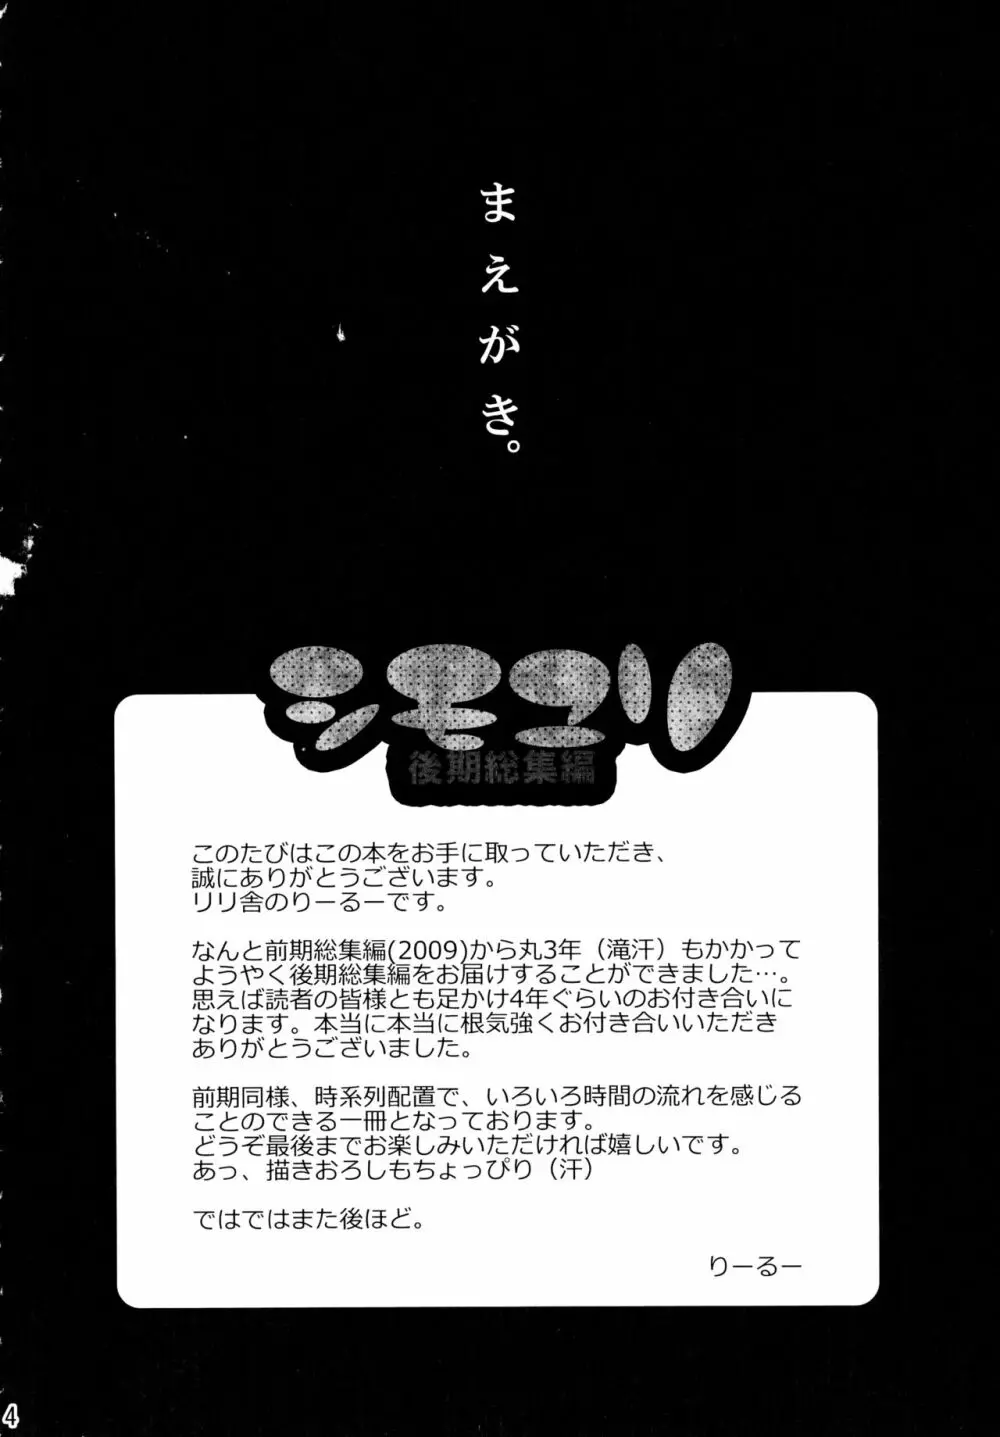 まえがき。
シモユリ
後期総集編
このたびはこの本をお手に取っていただき、
誠にありがとうございます。
リリ舎のりーるーです。
なんと前期総集編(2009)から丸3年（滝汗）もかかって
ようやく後期総集編をお届けすることができました…。
思えば読者の皆様とも足かけ4年ぐらいのお付き合いに
なります。本当に本当に根気強くお付き合いいただき
ありがとうございました。
前期同様、時系列配置で、いろいろ時間の流れを感じる
ことのできる一冊となっております。
どうぞ最後までお楽しみいただければ嬉しいです。
あっ、描きおろしもちょっぴり（汗）
ではではまた後ほど。
りーるー
4